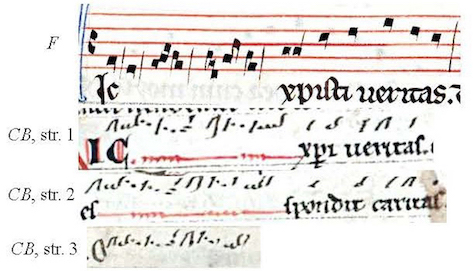 F
Ic xpisti ueritas.
CB, str. 1
IC xpi ueritas.
CB, str. 2
es spondit caritas
CB, str. 3
O